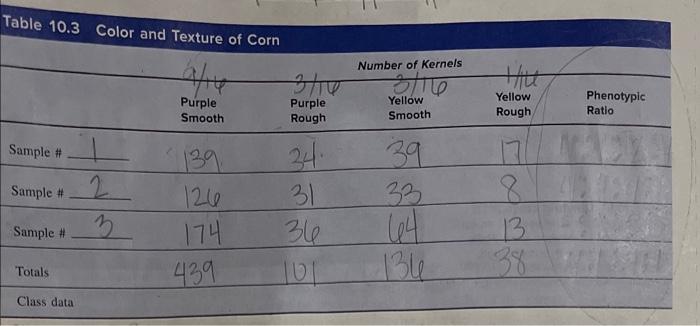 Table 10.3 Color and Texture of Corn
Number of Kernels
9/16 3/16 3/16 1/16
Purple Smooth Purple Rough Yellow Smooth Yellow Rough Phenotypic Ratio
Sample # 1 139 34 39 17
Sample # 2 126 31 33 8
Sample # 3 174 36 64 13
Totals 439 101 136 38
Class data